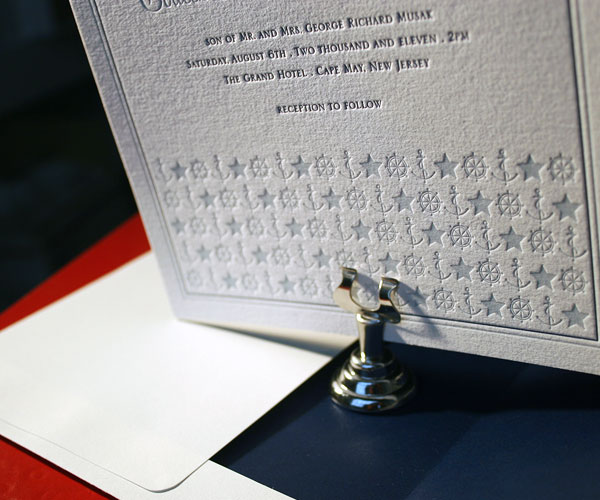 son of Mr. and Mrs. George Richard Musak
Saturday, August 6th . Two thousand and eleven . 2pm
The Grand Hotel . Cape May, New Jersey
reception to follow